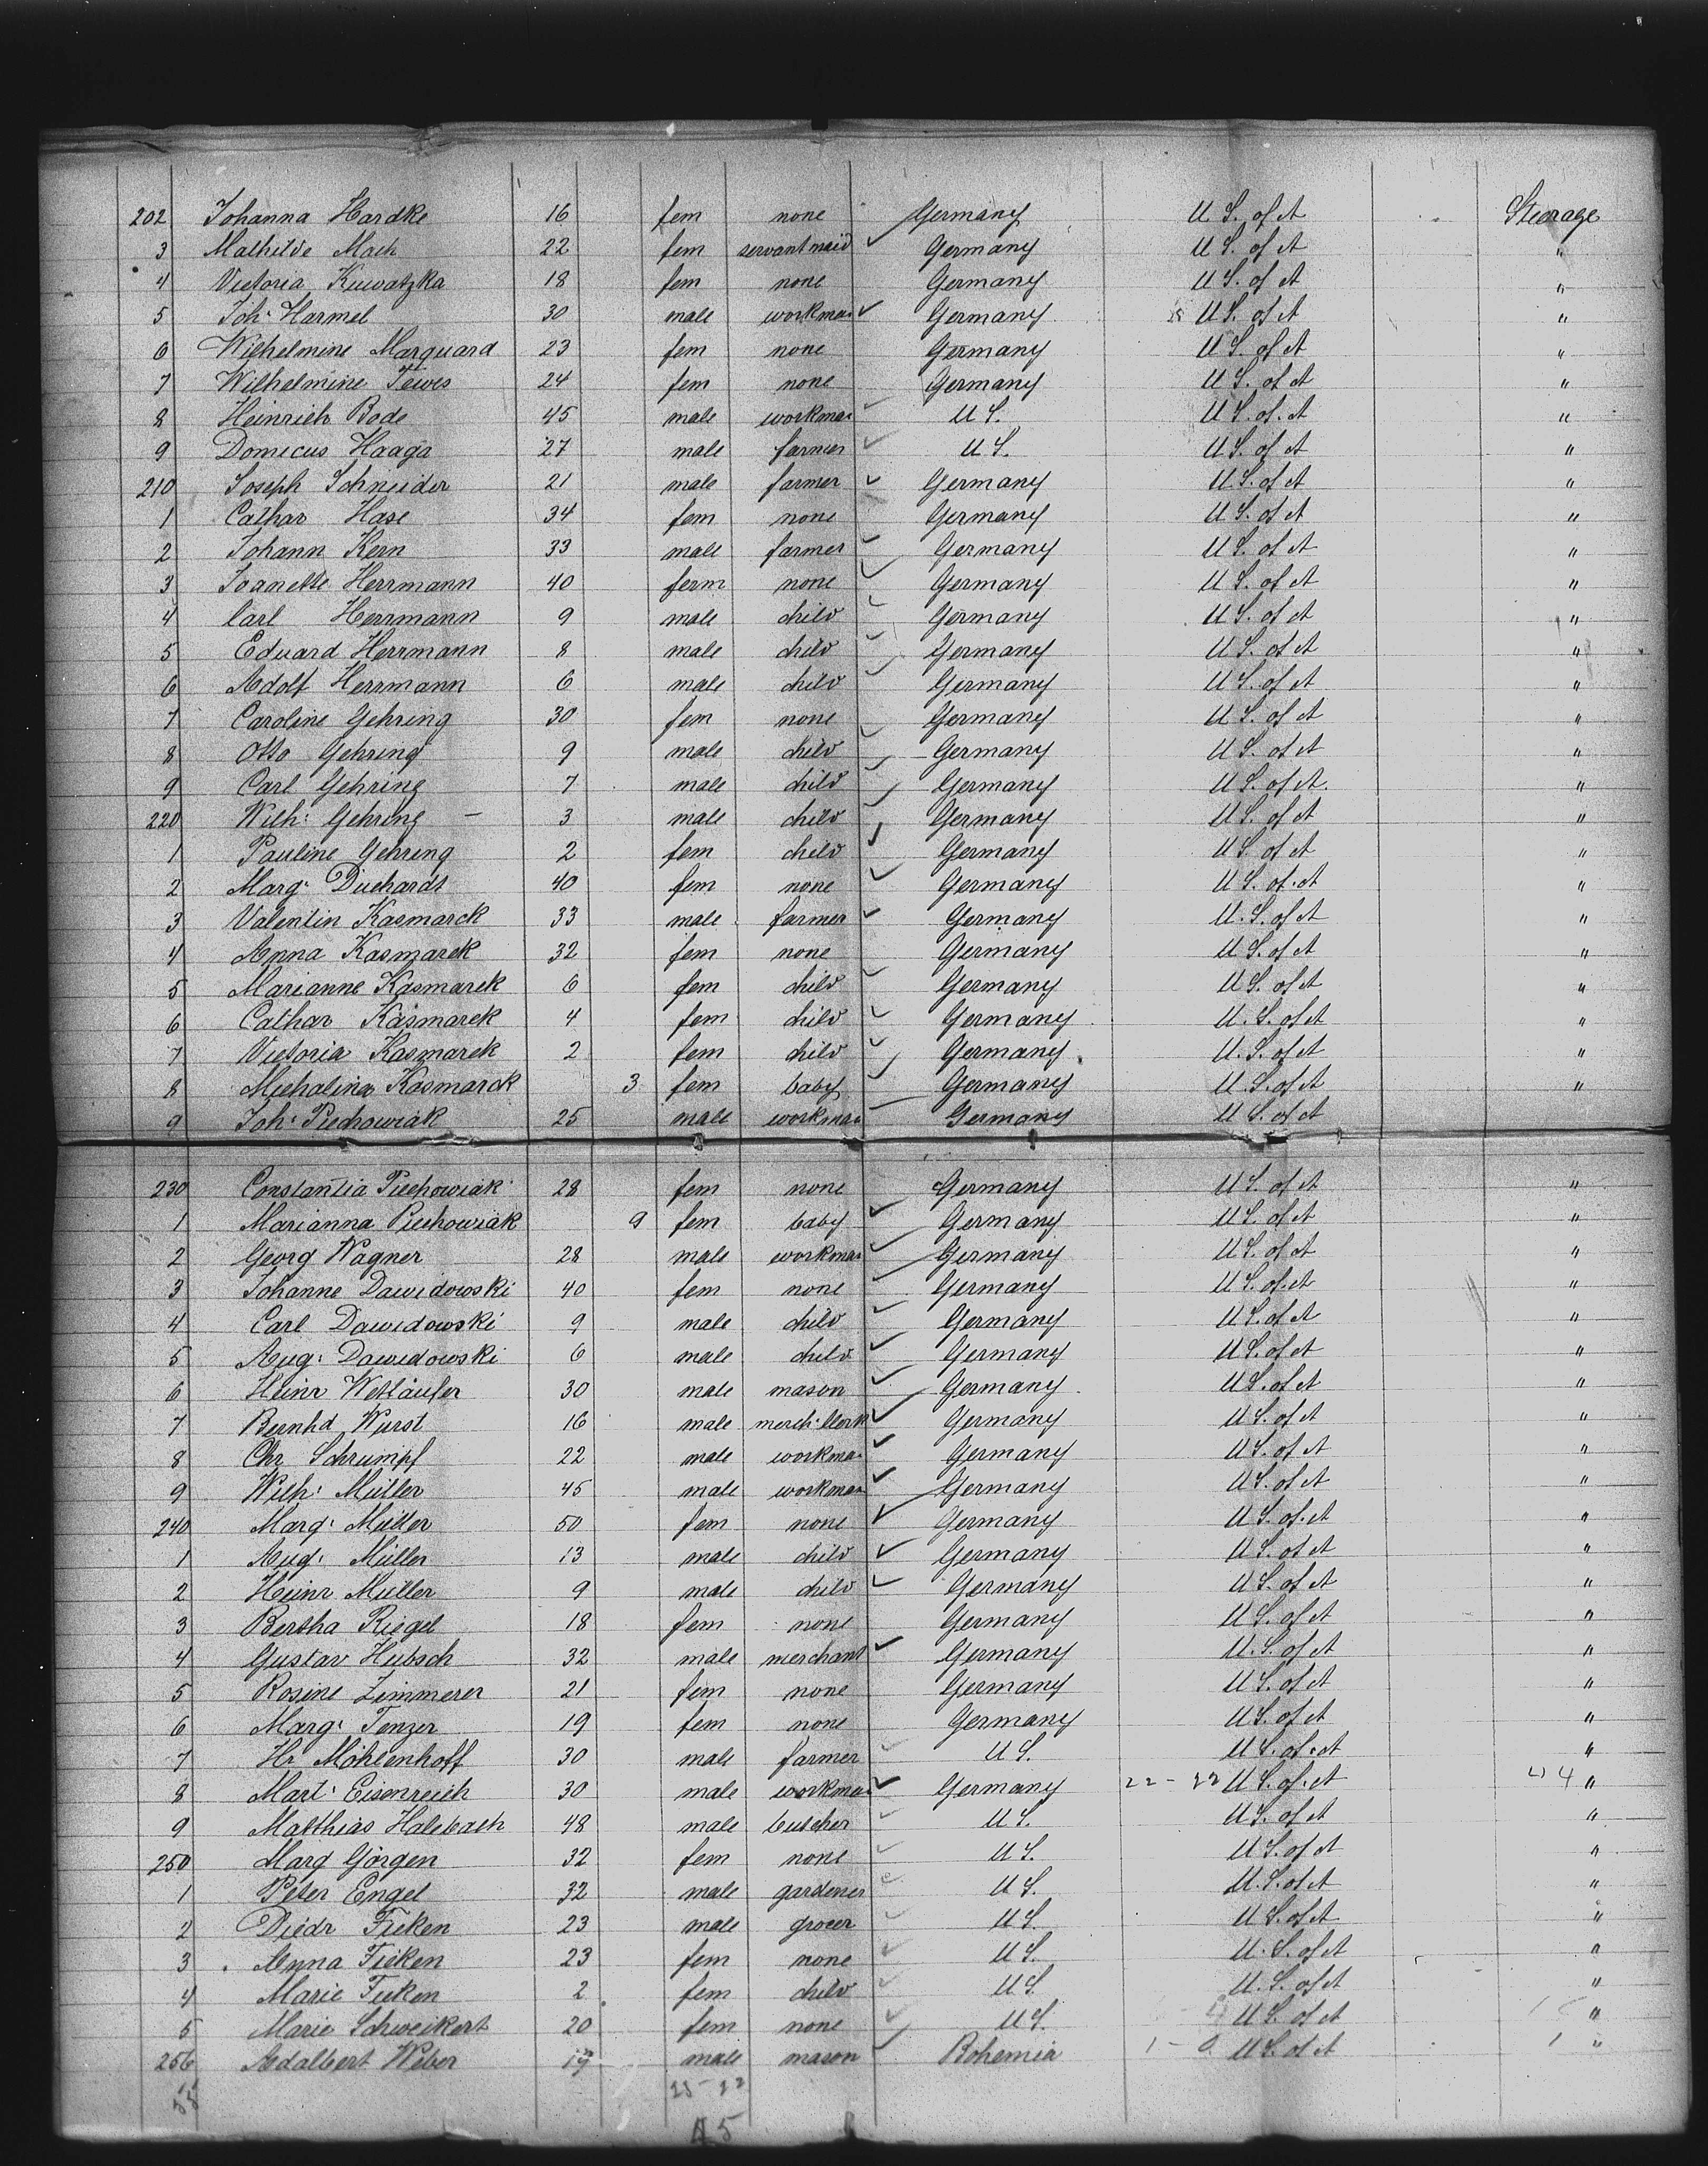 202 Johanna Hardke 16 fem none Germany U S. of A Steerage
3 Mathilde Mach 22 fem servantmaid Germany U S. of A "
4 Victoria Kuwatzka 18 fem none Germany U S. of A "
5 Joh: Harmel 30 male workman Germany U S. of A "
6 Wilhelmine Marquard 23 fem none Germany U S. of A "
7 Wilhelmine Tewes 24 fem none Germany U S. of A "
8 Heinrich Bode 45 male workman U S. U S. of A "
9 Domicus Haaga 27 male farmer U S. U S. of A "
210 Joseph Schneider 21 male farmer Germany U S. of A "
1 Cathar Hase 34 fem none Germany U S. of A "
2 Johann Kern 33 male farmer Germany U S. of A "
3 Joanette Herrmann 40 ferm none Germany U S. of A "
4 Carl Herrmann 9 male child Germany U S. of A "
5 Eduard Herrmann 8 male child Germany U S. of A "
6 Adolf Herrmann 6 male child Germany U S. of A "
7 Caroline Gehring 30 fem none Germany U S. of A "
8 Otto Gehring 9 male child Germany U S. of A "
9 Carl Gehring 7 male child Germany U S. of A. "
220 Wilh: Gehring – 3 male child Germany U S. of A "
1 Pauline Gehring 2 fem child Germany U S. of A "
2 Marg: Duchardt 40 fem none Germany U S. of A "
3 Valentin Kasmarck 33 male farmer Germany U. S. of A "
4 Anna Kasmarek 32 fem none Germany U S. of A "
5 Marianne Kasmarek 6 fem child Germany U S. of A "
6 Cathar Kasmarek 4 fem child Germany U. S. of A "
7 Victoria Kasmarek 2 fem child Germany U. S. of A "
8 Michalina Kasmarck 3 fem baby Germany U S. of A "
9 Joh: Piechowiak 25 male workman Germany U S. of A
230 Constantia Piechowiak 28 fem none Germany U S. of A "
1 Marianna Piechowiak 9 fem baby Germany U S. of A "
2 Georg Wagner 28 male workman Germany U S. of A "
3 Johanne Dawidowski 40 fem none Germany U S. of A "
4 Carl Dawidowski 9 male child Germany U S. of A "
5 Aug: Dawidowski 6 male child Germany U S. of A "
6 Heinr Wettäufer 30 male mason Germany U S. of A "
7 Bernhd Wurst 16 male merch: Clerk Germany U S. of A "
8 Chr Schrumpf 22 male workman Germany U S. of A "
9 Wilh: Müller 45 male workman Germany U S. of A "
240 Marg: Müller 50 fem none Germany U S. of A "
1 Aug: Müller 13 male child Germany U S. of A "
2 Heinr Müller 9 male child Germany U S. of A "
3 Bertha Riegel 18 fem none Germany U S. of A "
4 Gustav Hübsch 32 male merchant Germany U. S. of A "
5 Rosine Zimmerer 21 fem none Germany U S. of A "
6 Marg: Tenzer 19 fem none Germany U S. of A "
7 Hr Möhlenhoff 30 male farmer U S. U S. of A "
8 Mart: Eisenreich 30 male workman Germany 22 - 22 U S. of A 4 "
9 Matthias Halsbach 48 male butcher U S. U S. of A "
250 Marg Görgen 32 fem none U S. U S. of A "
1 Peter Engel 32 male gardener U S. U. S. of A "
2 Diedr Ficken 23 male grocer U S. U S. of A "
3 Anna Ficken 23 fem none U S. U. S. of A "
4 Marie Ficken 2 fem child U S. U. S. of A "
5 Marie Schweikert 20 fem none U S. U S. of A "
256 Adalbert Weber 19 male mason Bohemia 1 - 0 U S. of A 1 "
55